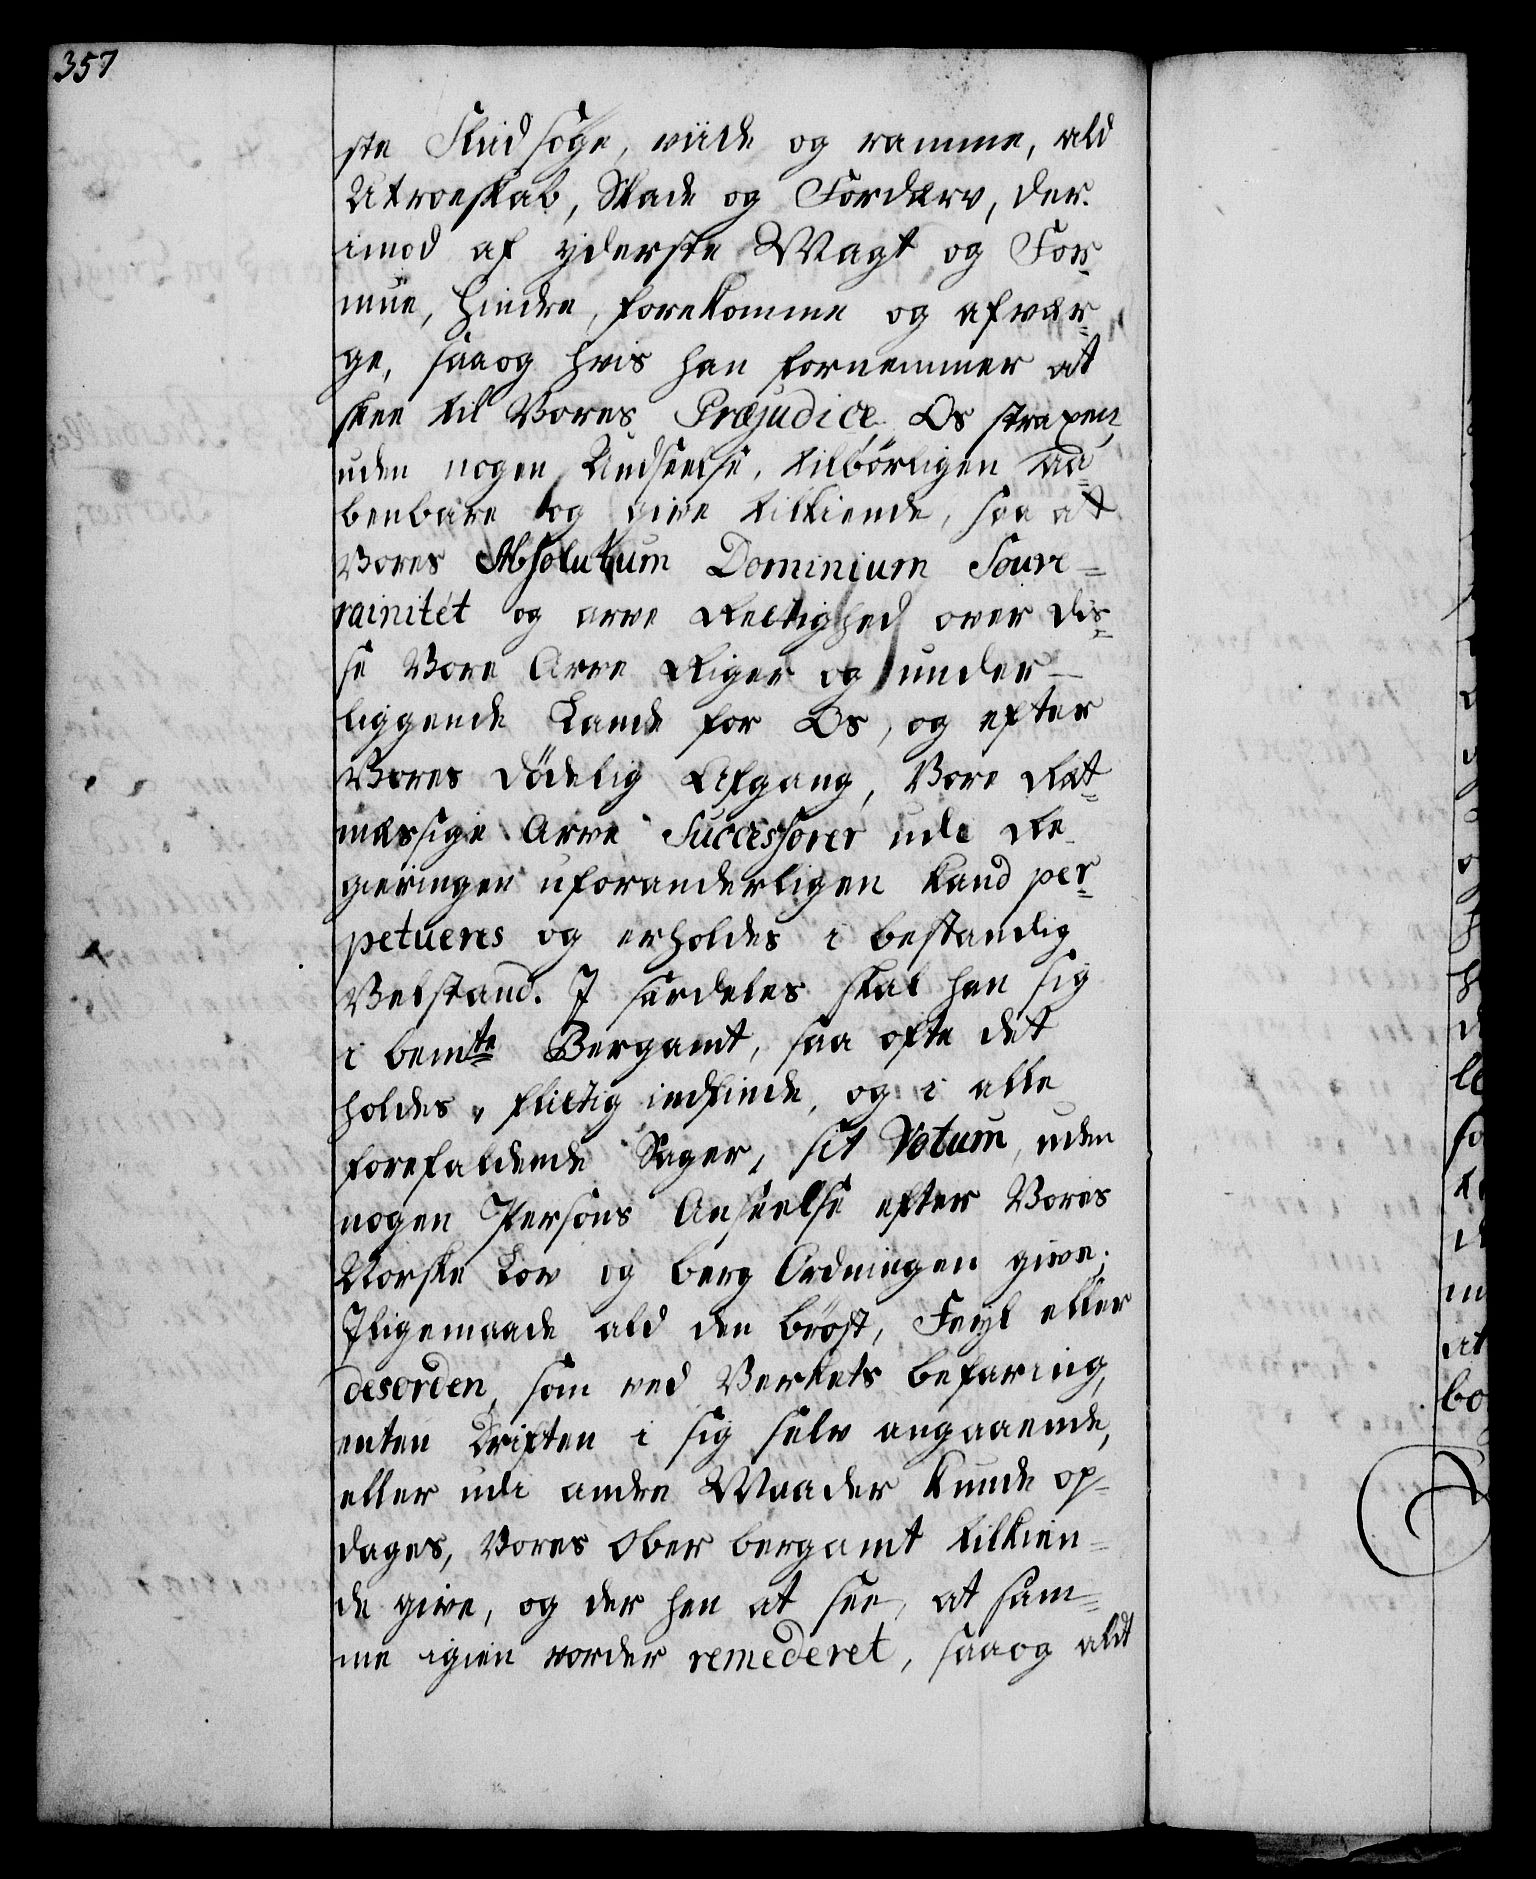 357
ste Flid søge, viide og ramme, ald
Utroeskab, Skade og Fordærv, der-
imod af yderste Magt og For-
mue, hindre, forekomme og afvær-
ge, saa og hvis han fornemmer at
skee til Vores Præjudice Os straxen,
uden nogen Undseelse, tilbørligen aa-
benbare og give tilkiende, saa at
Vores Absolutum Dominium Souve-
rainitét og arve Rettighed over dis-
se Vore Arve Riger og under-
liggende Lande for Os, og efter
Vores dødelig Afgang, Vore Ret-
mæssige Arve Successorer udi Re-
gieringen uforanderligen kand per-
petueres og erholdes i bestandig
Velstand. I særdeles skal han sig
i bemte Bergamt, saa ofte det
holdes, flittig indfinde, og i alle
forefaldende Sager, sit Votum, uden
nogen Persons Anseelse efter Vores
Norske Lov og berg Ordningen give;
Iligemaade ald den brøst, Feyl eller
desorden, som ved Verkets befaring,
enten Driften i sig selv angaaende,
eller udi andre Maader kunde op-
dages, Vores Ober bergamt tilkien-
de give, og der hen at see, at sam-
me igien vorder remederet, saa og aldt